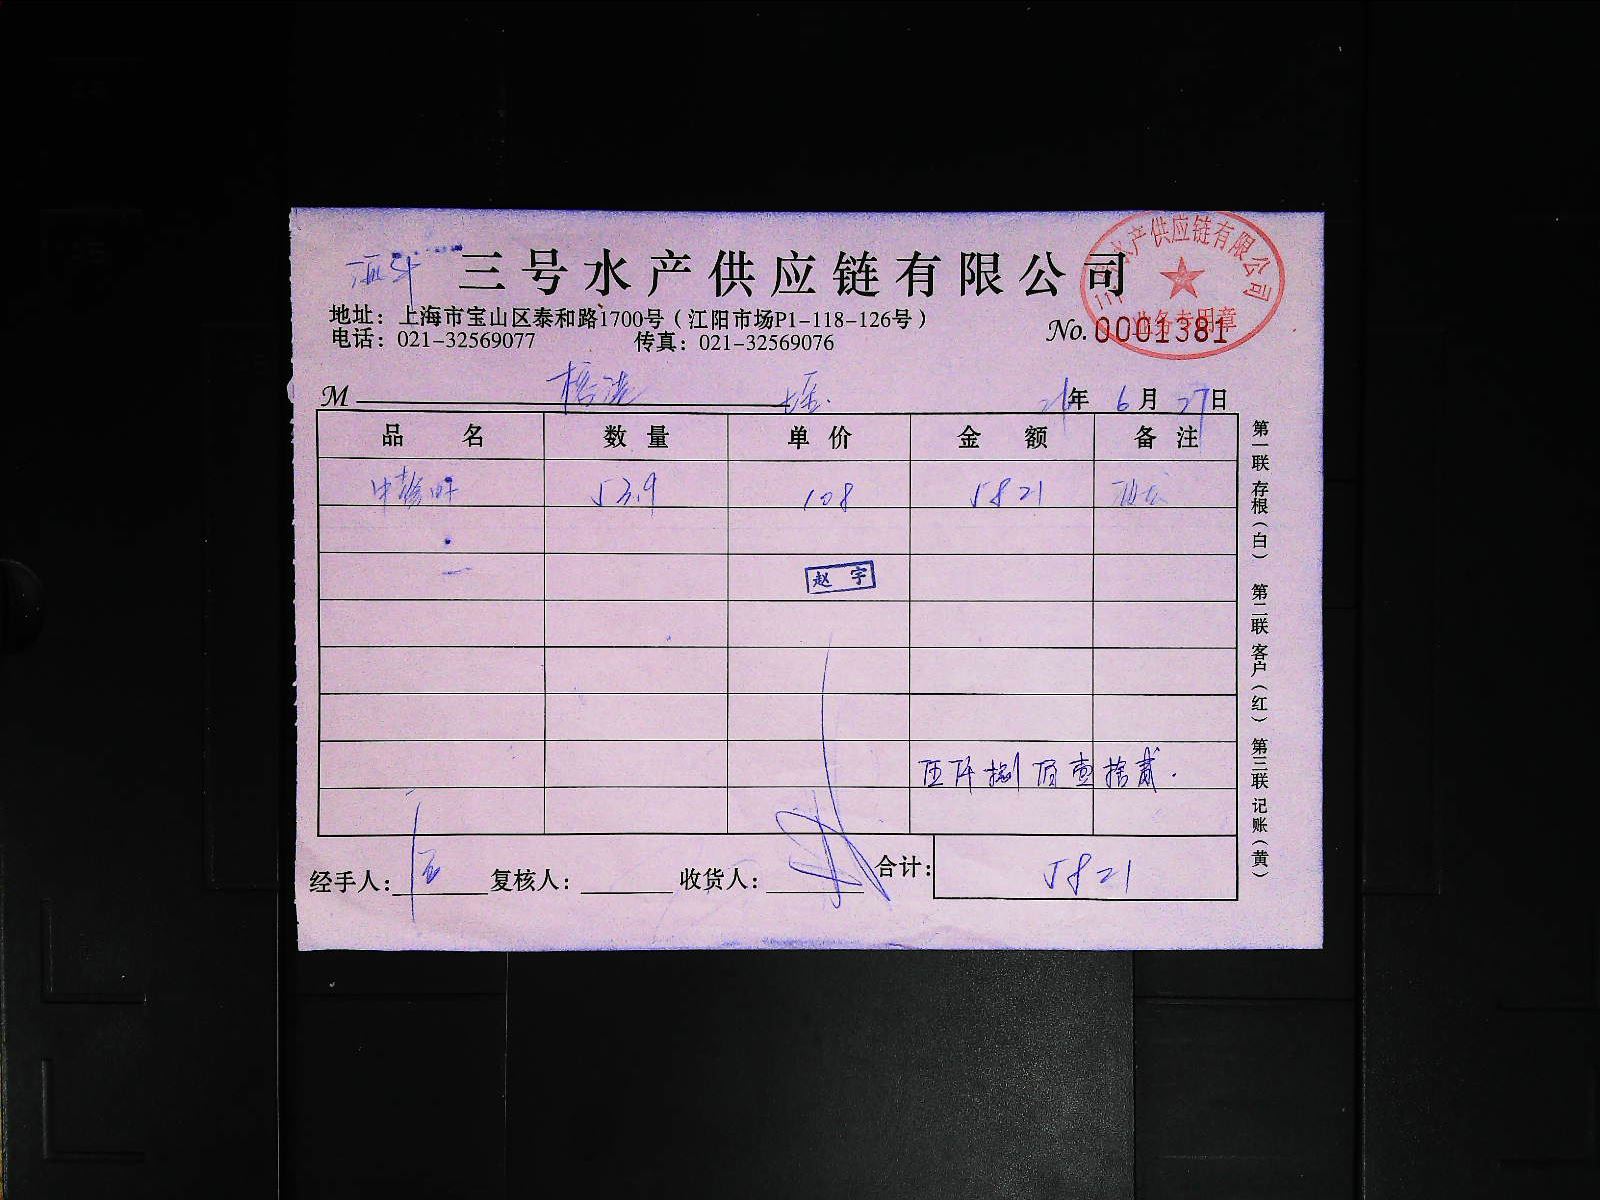 三号水产供应链有限公司
三号水产供应链有限公司
业务专用章
地址：上海市宝山区泰和路1700号（江阳市场P1-118-126号）
电话：021-32569077 传真：021-32569076
No. 0001381
M 年 6 月 27 日
品 名 数 量 单 价 金 额 备 注
53.9 108 5821
赵 宇
伍仟捌佰壹拾贰.
经手人： 复核人： 收货人： 合计： 5821
第一联 存根（白） 第二联 客户（红） 第三联 记账（黄）